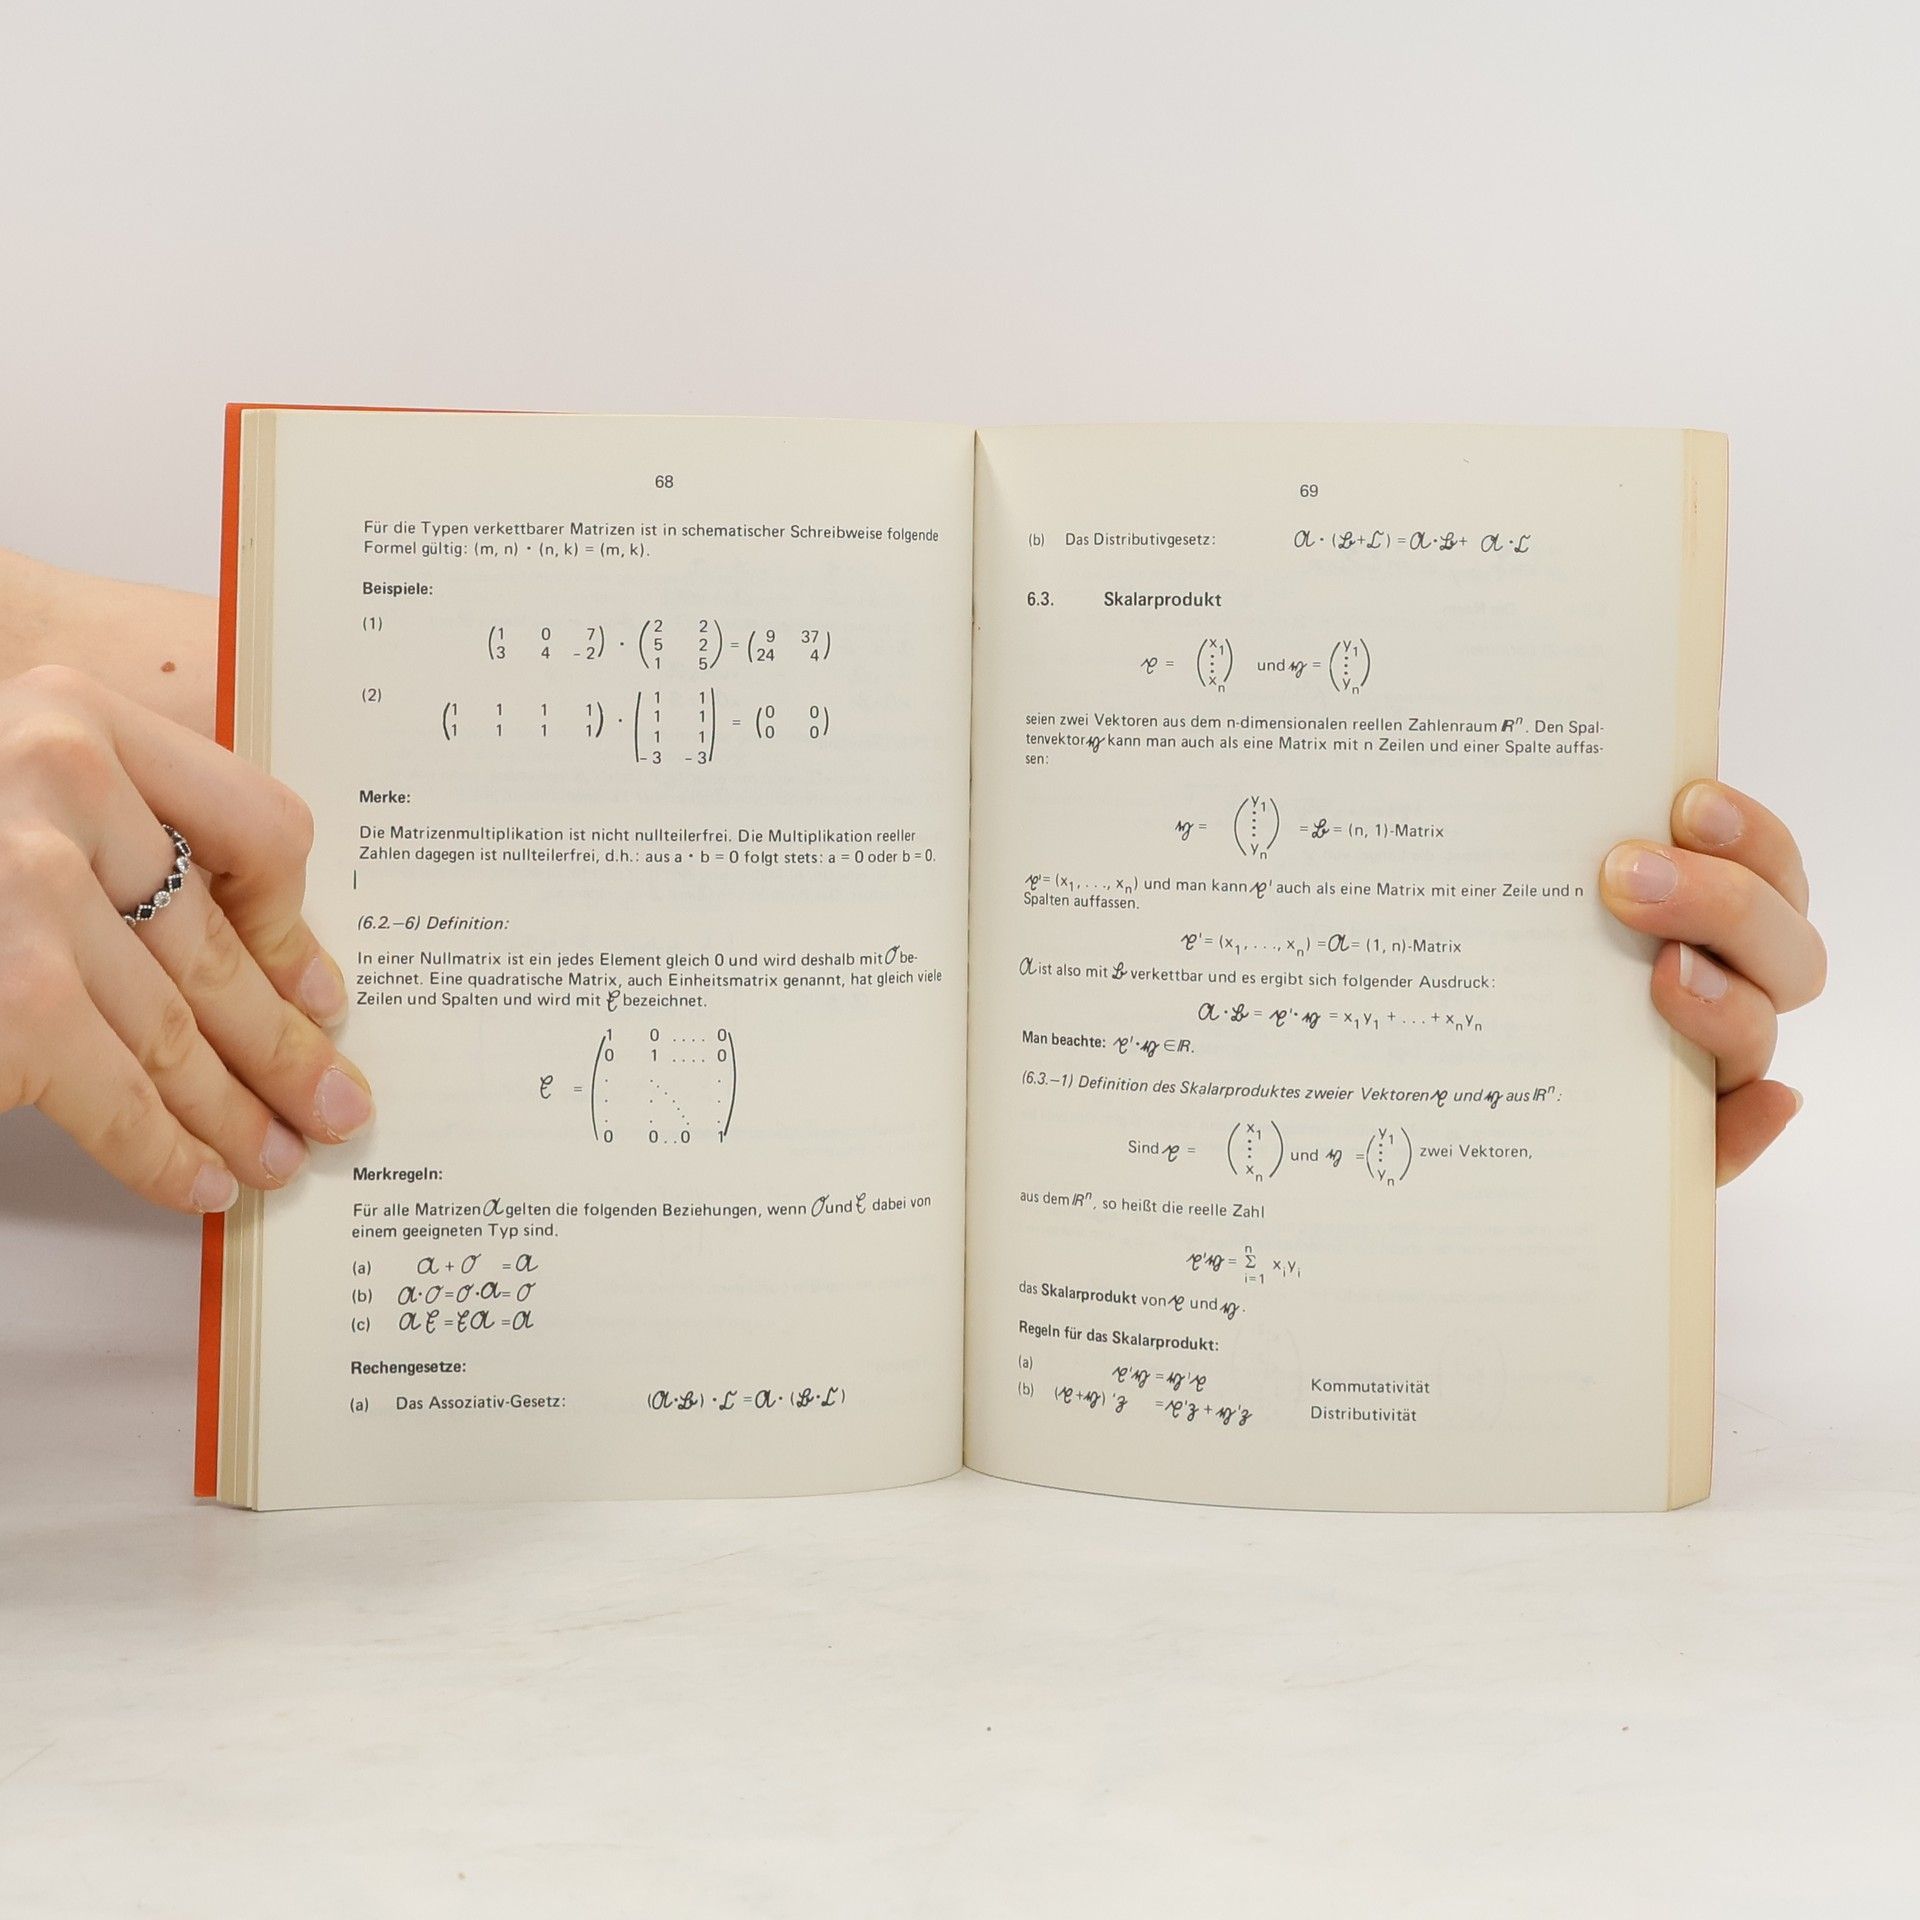 68
Für die Typen verkettbarer Matrizen ist in schematischer Schreibweise folgende
Formel gültig: (m, n) · (n, k) = (m, k).
Beispiele:
(1)
(1 0 7) · (2 2) = (9 37)
(3 4 -2) (5 2) (24 4)
(1 5)
(2)
(1 1 1 1) · (1 1) = (0 0)
(1 1 1 1) (1 1) (0 0)
(1 1)
(-3 -3)
Merke:
Die Matrizenmultiplikation ist nicht nullteilerfrei. Die Multiplikation reeller
Zahlen dagegen ist nullteilerfrei, d.h.: aus a · b = 0 folgt stets: a = 0 oder b = 0.
(6.2.–6) Definition:
In einer Nullmatrix ist ein jedes Element gleich 0 und wird deshalb mit 𝒪 be-
zeichnet. Eine quadratische Matrix, auch Einheitsmatrix genannt, hat gleich viele
Zeilen und Spalten und wird mit ℰ bezeichnet.
1 0 .... 0
0 1 .... 0
ℰ =
0 0..0 1
Merkregeln:
Für alle Matrizen 𝒜 gelten die folgenden Beziehungen, wenn 𝒪 und ℰ dabei von
einem geeigneten Typ sind.
(a) 𝒜 + 𝒪 = 𝒜
(b) 𝒜·𝒪 = 𝒪·𝒜 = 𝒪
(c) 𝒜ℰ = ℰ𝒜 = 𝒜
Rechengesetze:
(a) Das Assoziativ-Gesetz: (𝒜·ℬ)·ℒ = 𝒜·(ℬ·ℒ)
69
(b) Das Distributivgesetz: 𝒜·(ℬ+ℒ) = 𝒜·ℬ + 𝒜·ℒ
6.3. Skalarprodukt
𝔵 = (x₁ ⋮ xₙ) und 𝔶 = (y₁ ⋮ yₙ)
seien zwei Vektoren aus dem n-dimensionalen reellen Zahlenraum ℝⁿ. Den Spal-
tenvektor 𝔶 kann man auch als eine Matrix mit n Zeilen und einer Spalte auffas-
sen:
𝔶 = (y₁ ⋮ yₙ) = ℬ = (n, 1)-Matrix
𝔵' = (x₁, . . ., xₙ) und man kann 𝔵' auch als eine Matrix mit einer Zeile und n
Spalten auffassen.
𝔵' = (x₁, . . ., xₙ) = 𝒜 = (1, n)-Matrix
𝒜 ist also mit ℬ verkettbar und es ergibt sich folgender Ausdruck:
𝒜·ℬ = 𝔵'·𝔶 = x₁y₁ + . . . + xₙyₙ
Man beachte: 𝔵'·𝔶 ∈ ℝ.
(6.3.–1) Definition des Skalarproduktes zweier Vektoren 𝔵 und 𝔶 aus ℝⁿ:
Sind 𝔵 = (x₁ ⋮ xₙ) und 𝔶 = (y₁ ⋮ yₙ) zwei Vektoren,
aus dem ℝⁿ, so heißt die reelle Zahl
n
𝔵'𝔶 = Σ xᵢyᵢ
i=1
das Skalarprodukt von 𝔵 und 𝔶.
Regeln für das Skalarprodukt:
(a) 𝔵'𝔶 = 𝔶'𝔵 Kommutativität
(b) (𝔵+𝔶)'𝔷 = 𝔵'𝔷 + 𝔶'𝔷 Distributivität